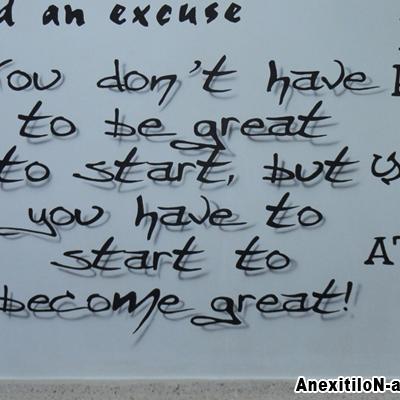 d an excuse
You don't have
to be great
to start, but
you have to
start to
become great!
AnexitiloN-a